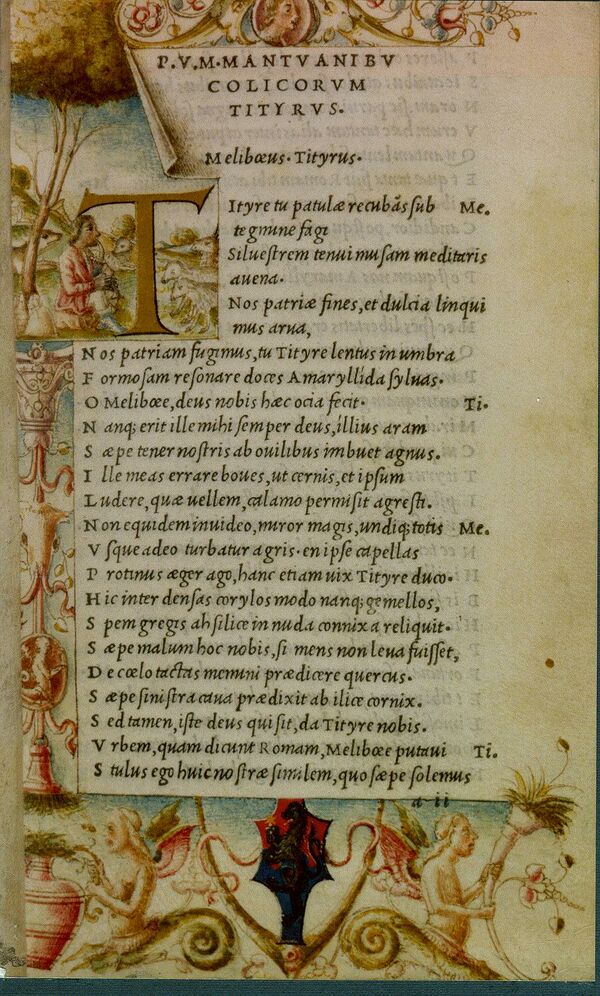 P.V.M.MANTVANIBV
COLICORVM
TITYRVS.
Melibœus.Tityrus.
Tityre tu patulæ recubãs sub Me.
tegmine fagi
Siluestrem tenui musam meditaris
auena.
Nos patriæ fines, et dulcia linqui
mus arua,
Nos patriam fugimus, tu Tityre lentus in umbra
Formosam resonare doces Amaryllida syluas.
O Melibœe, deus nobis hæc ocia fecit. Ti.
Nanq; erit ille mihi semper deus, illius aram
Sæpe tener nostris ab ouilibus imbuet agnus.
Ille meas errare boues, ut cernis, et ipsum
Ludere, quæ uellem, calamo permisit agresti.
Non equidem inuideo, miror magis, undiq; totis Me.
Vsque adeo turbatur agris. en ipse capellas
Protinus æger ago, hanc etiam uix Tityre duco.
Hic inter densas corylos modo nanq; gemellos,
Spem gregis ah silice in nuda connixa reliquit.
Sæpe malum hoc nobis, si mens non leua fuisset,
De cœlo tactas memini prædicere quercus.
Sæpe sinistra caua prædixit ab ilice cornix.
Sed tamen, iste deus qui sit, da Tityre nobis.
Vrbem, quam dicunt Romam, Melibœe putaui Ti.
Stulus ego huic nostræ similem, quo sæpe solemus
a ii